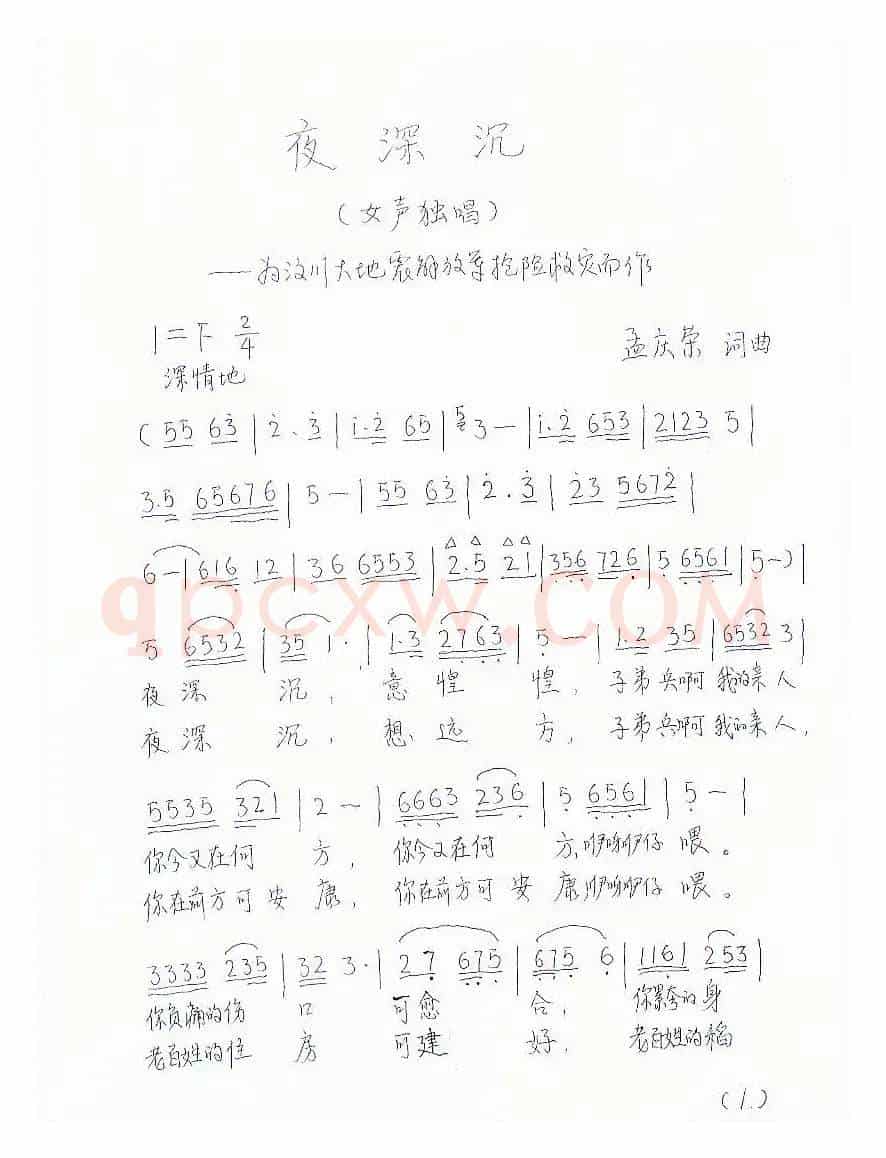 夜深沉
（女声独唱）
——为汶川大地震解放军抢险救灾而作
1=F 2/4
孟庆荣 词曲
深情地
( 55 63 | 2. 3 | 1.2 65 | 5 3 — | 1.2 653 | 2123 5 |
3.5 65676 | 5 — | 55 63 | 2.3 | 23 5672 |
6 — | 616 12 | 36 6553 | 2.5 21 | 356 726 | 5 6561 | 5 — ) |
qpcxw.com
5 6532 | 35 1. | 1.3 2763 | 5 — | 1.2 35 | 6532 3 |
夜深 沉， 意惶 惶， 子弟兵啊我的亲人
夜深 沉， 想远 方， 子弟兵啊我的亲人，
5535 321 | 2 — | 6663 236 | 5 6561 | 5 — |
你今又在何 方， 你今又在何 方，咿呀咿仔喂。
你在前方可安 康， 你在前方可安 康，咿呀咿仔喂。
3333 235 | 32 3. | 27 675 | 675 6 | 1161 253 |
你负痛的伤 口 可愈 合， 你累的身
老百姓的住 房 可建 好， 老百姓的稻
(1.)